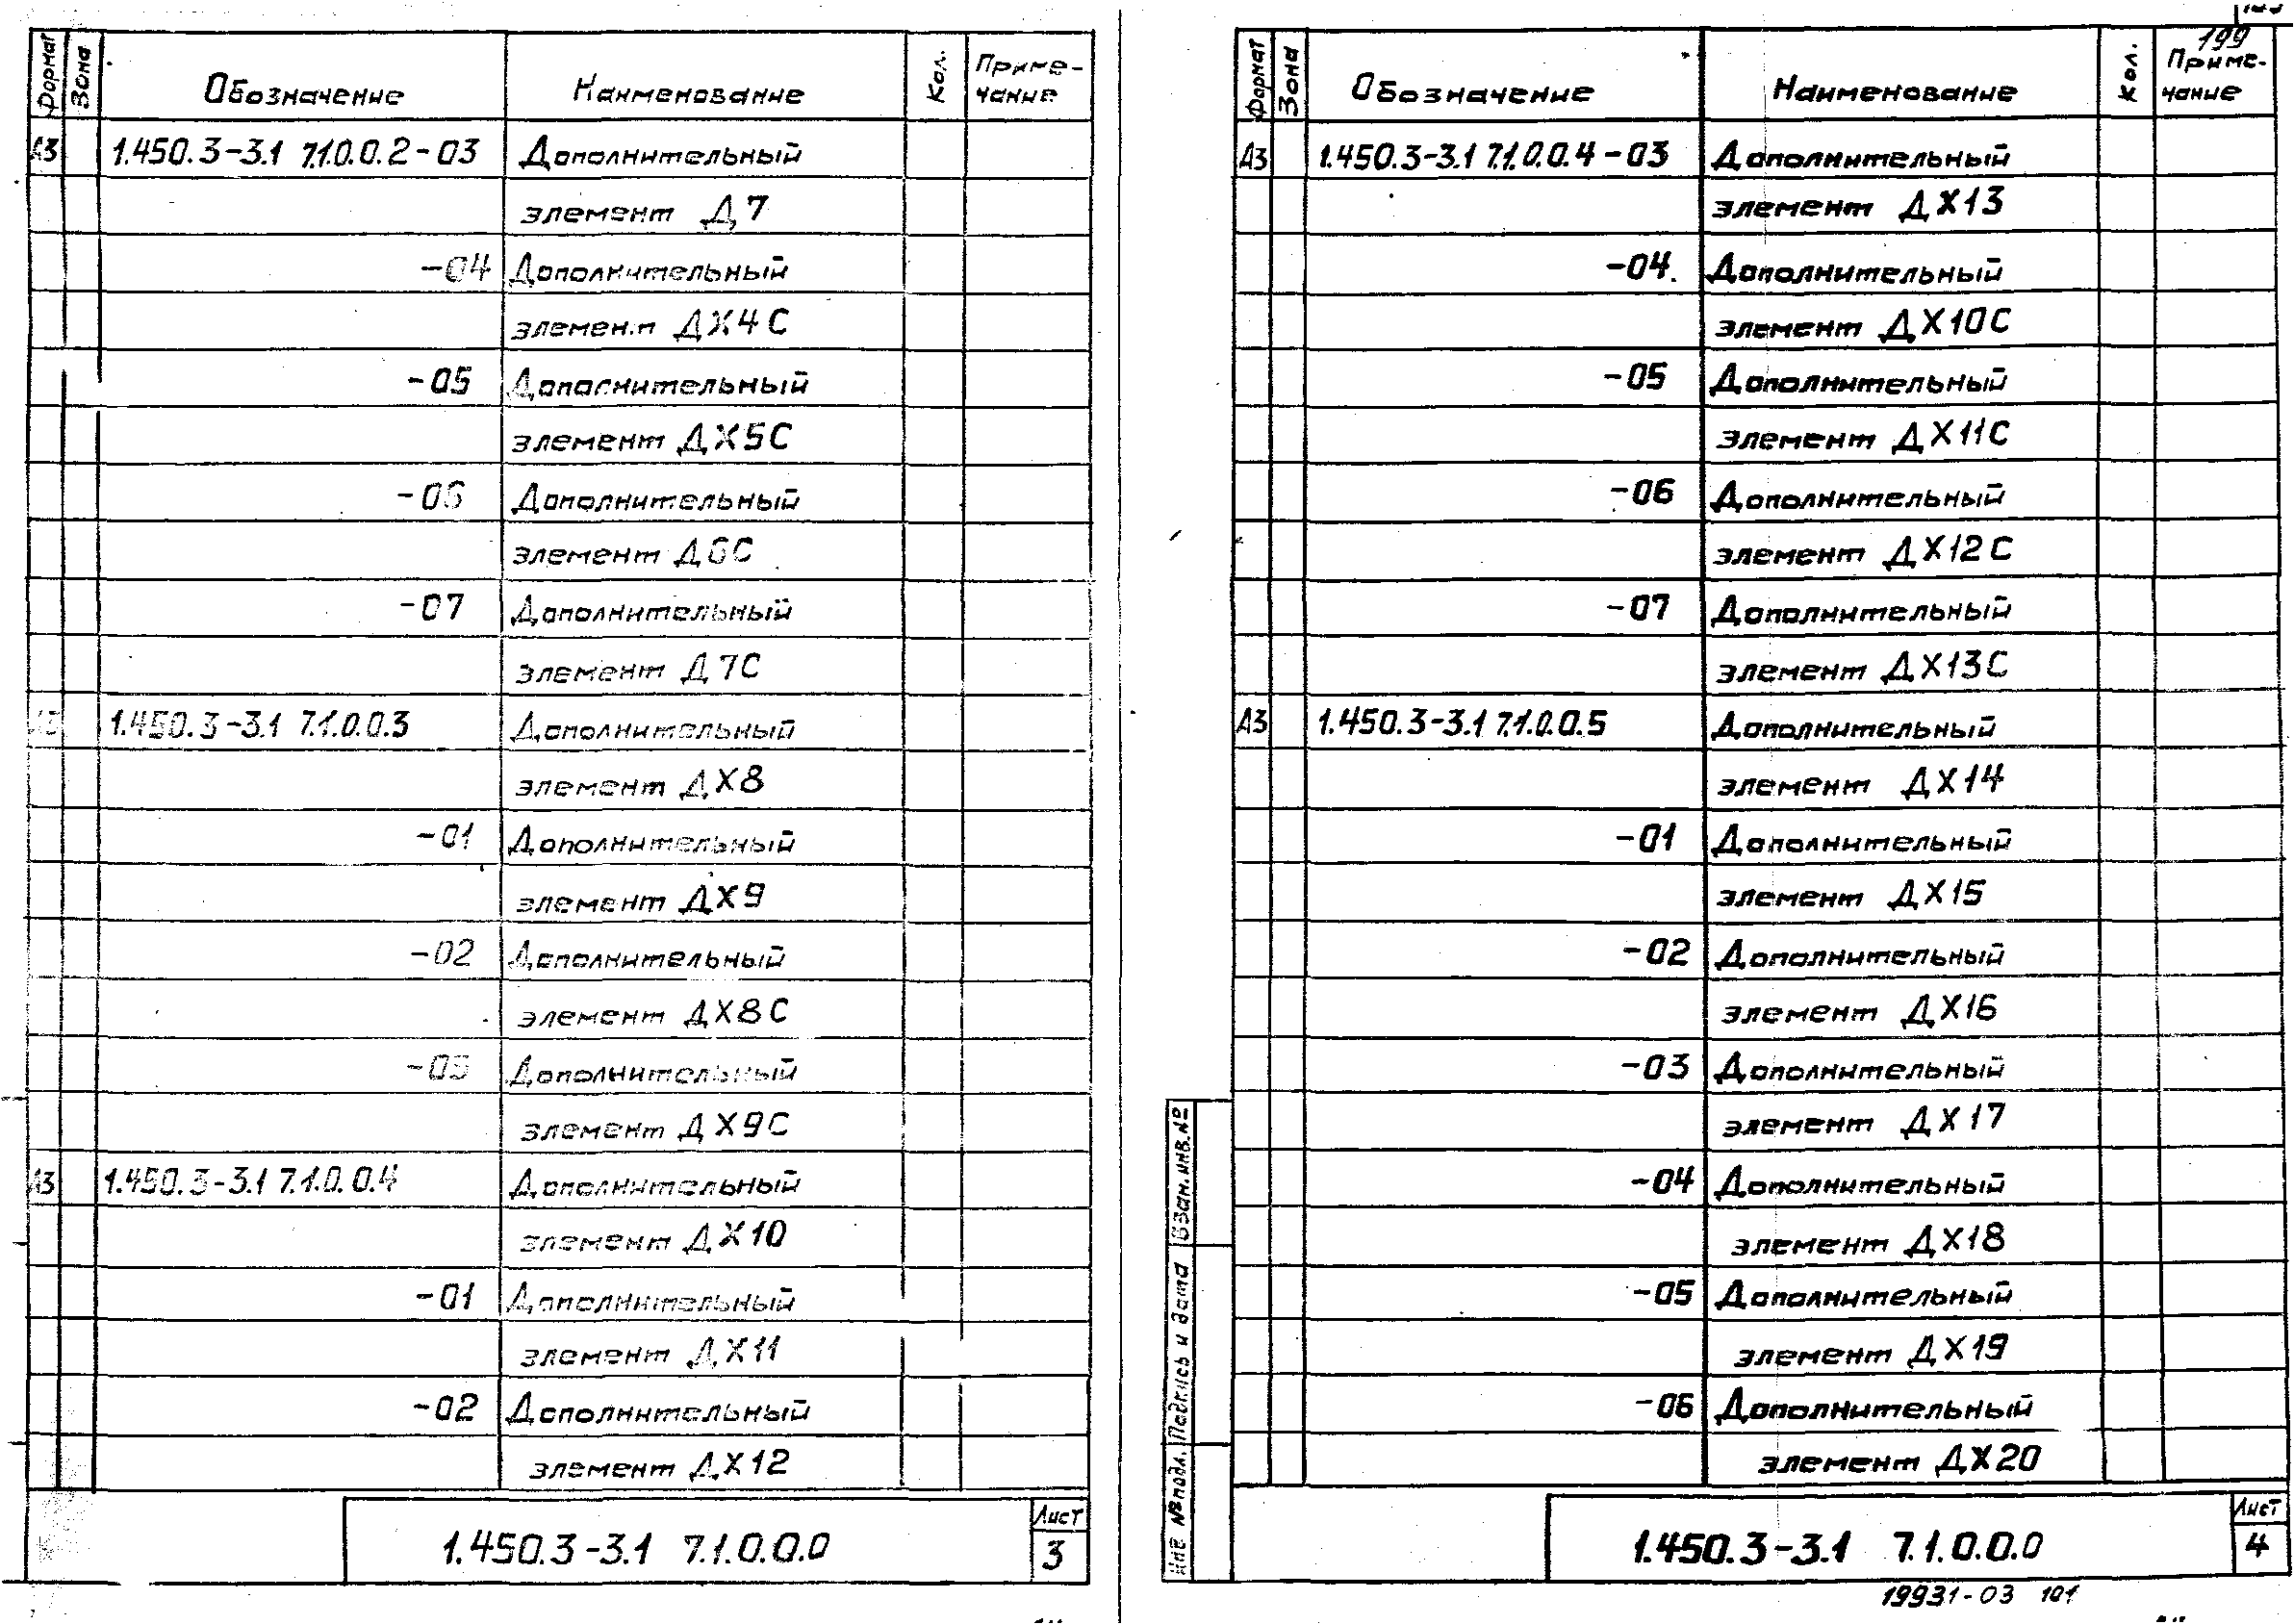 Формат Зона Обозначение Наименование Кол. Приме-
чание
А3 1.450.3-3.1 7.1.0.0.2-03 Дополнительный
элемент Д7
-04 Дополнительный
элемент ДХ4С
-05 Дополнительный
элемент ДХ5С
-06 Дополнительный
элемент Д6С
-07 Дополнительный
элемент Д7С
А3 1.450.3-3.1 7.1.0.0.3 Дополнительный
элемент ДХ8
-01 Дополнительный
элемент ДХ9
-02 Дополнительный
элемент ДХ8С
-03 Дополнительный
элемент ДХ9С
А3 1.450.3-3.1 7.1.0.0.4 Дополнительный
элемент ДХ10
-01 Дополнительный
элемент ДХ11
-02 Дополнительный
элемент ДХ12
1.450.3-3.1 7.1.0.0.0
Лист
3
199
Формат Зона Обозначение Наименование Кол. Приме-
чание
А3 1.450.3-3.1 7.1.0.0.4-03 Дополнительный
элемент ДХ13
-04. Дополнительный
элемент ДХ10С
-05 Дополнительный
элемент ДХ11С
-06 Дополнительный
элемент ДХ12С
-07 Дополнительный
элемент ДХ13С
А3 1.450.3-3.1 7.1.0.0.5 Дополнительный
элемент ДХ14
-01 Дополнительный
элемент ДХ15
-02 Дополнительный
элемент ДХ16
-03 Дополнительный
элемент ДХ17
-04 Дополнительный
элемент ДХ18
-05 Дополнительный
элемент ДХ19
-06 Дополнительный
элемент ДХ20
Взам.инв.№
Подпись и дата
Инв №подл.
1.450.3-3.1 7.1.0.0.0
Лист
4
19931-03 101